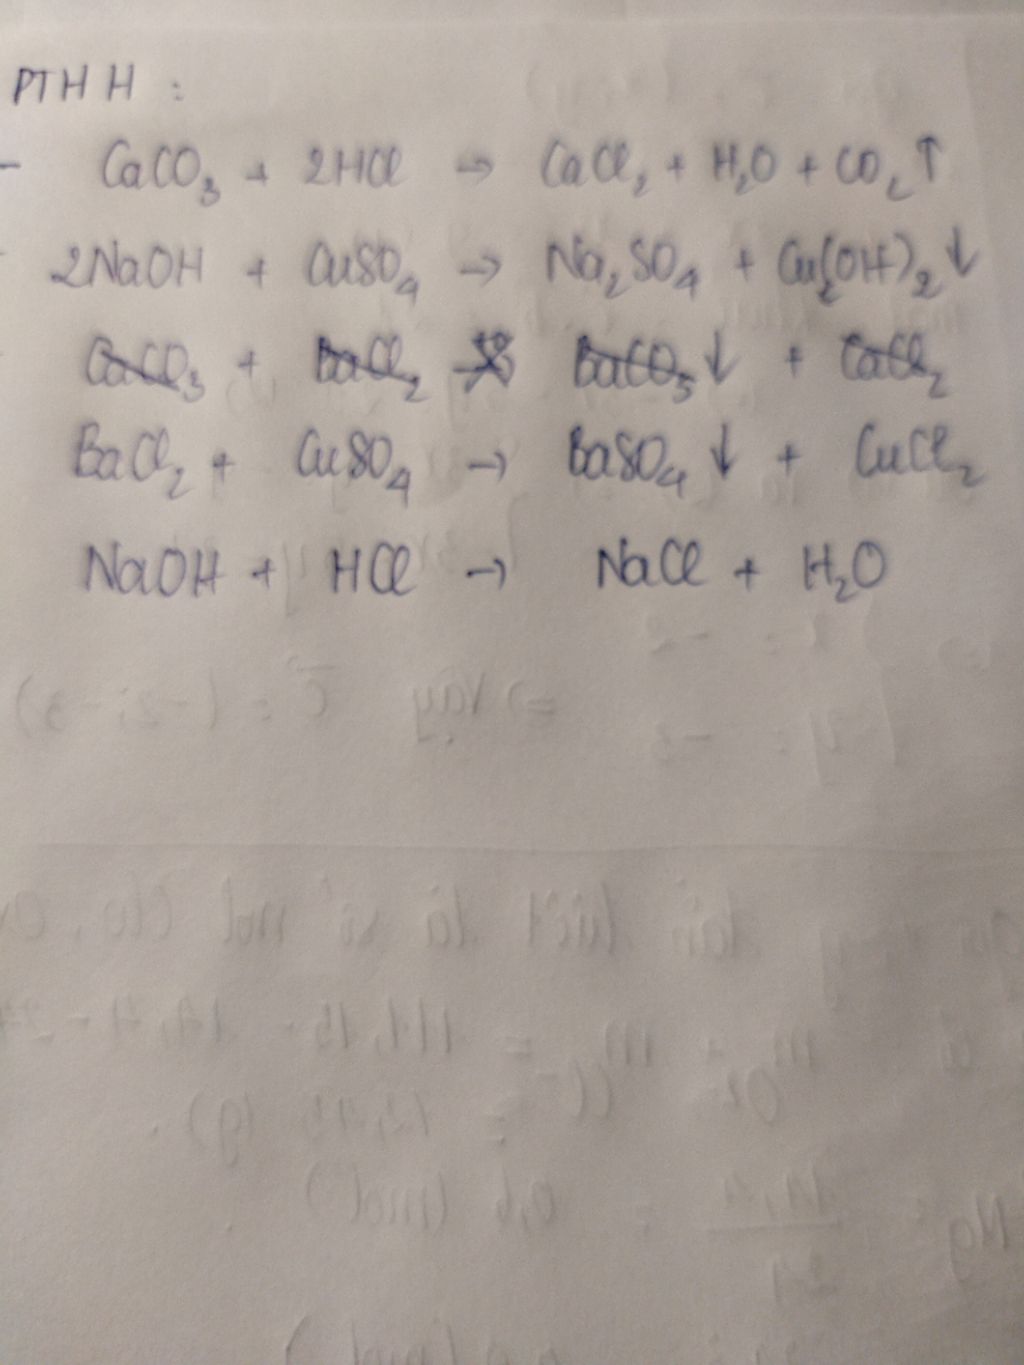 PTHH :
- CaCO₃ + 2HCl → CaCl₂ + H₂O + CO₂ ↑
- 2NaOH + CuSO₄ → Na₂SO₄ + Cu(OH)₂ ↓
- CaCO₃ + BaCl₂ → BaCO₃ ↓ + CaCl₂
BaCl₂ + CuSO₄ → BaSO₄ ↓ + CuCl₂
NaOH + HCl → NaCl + H₂O